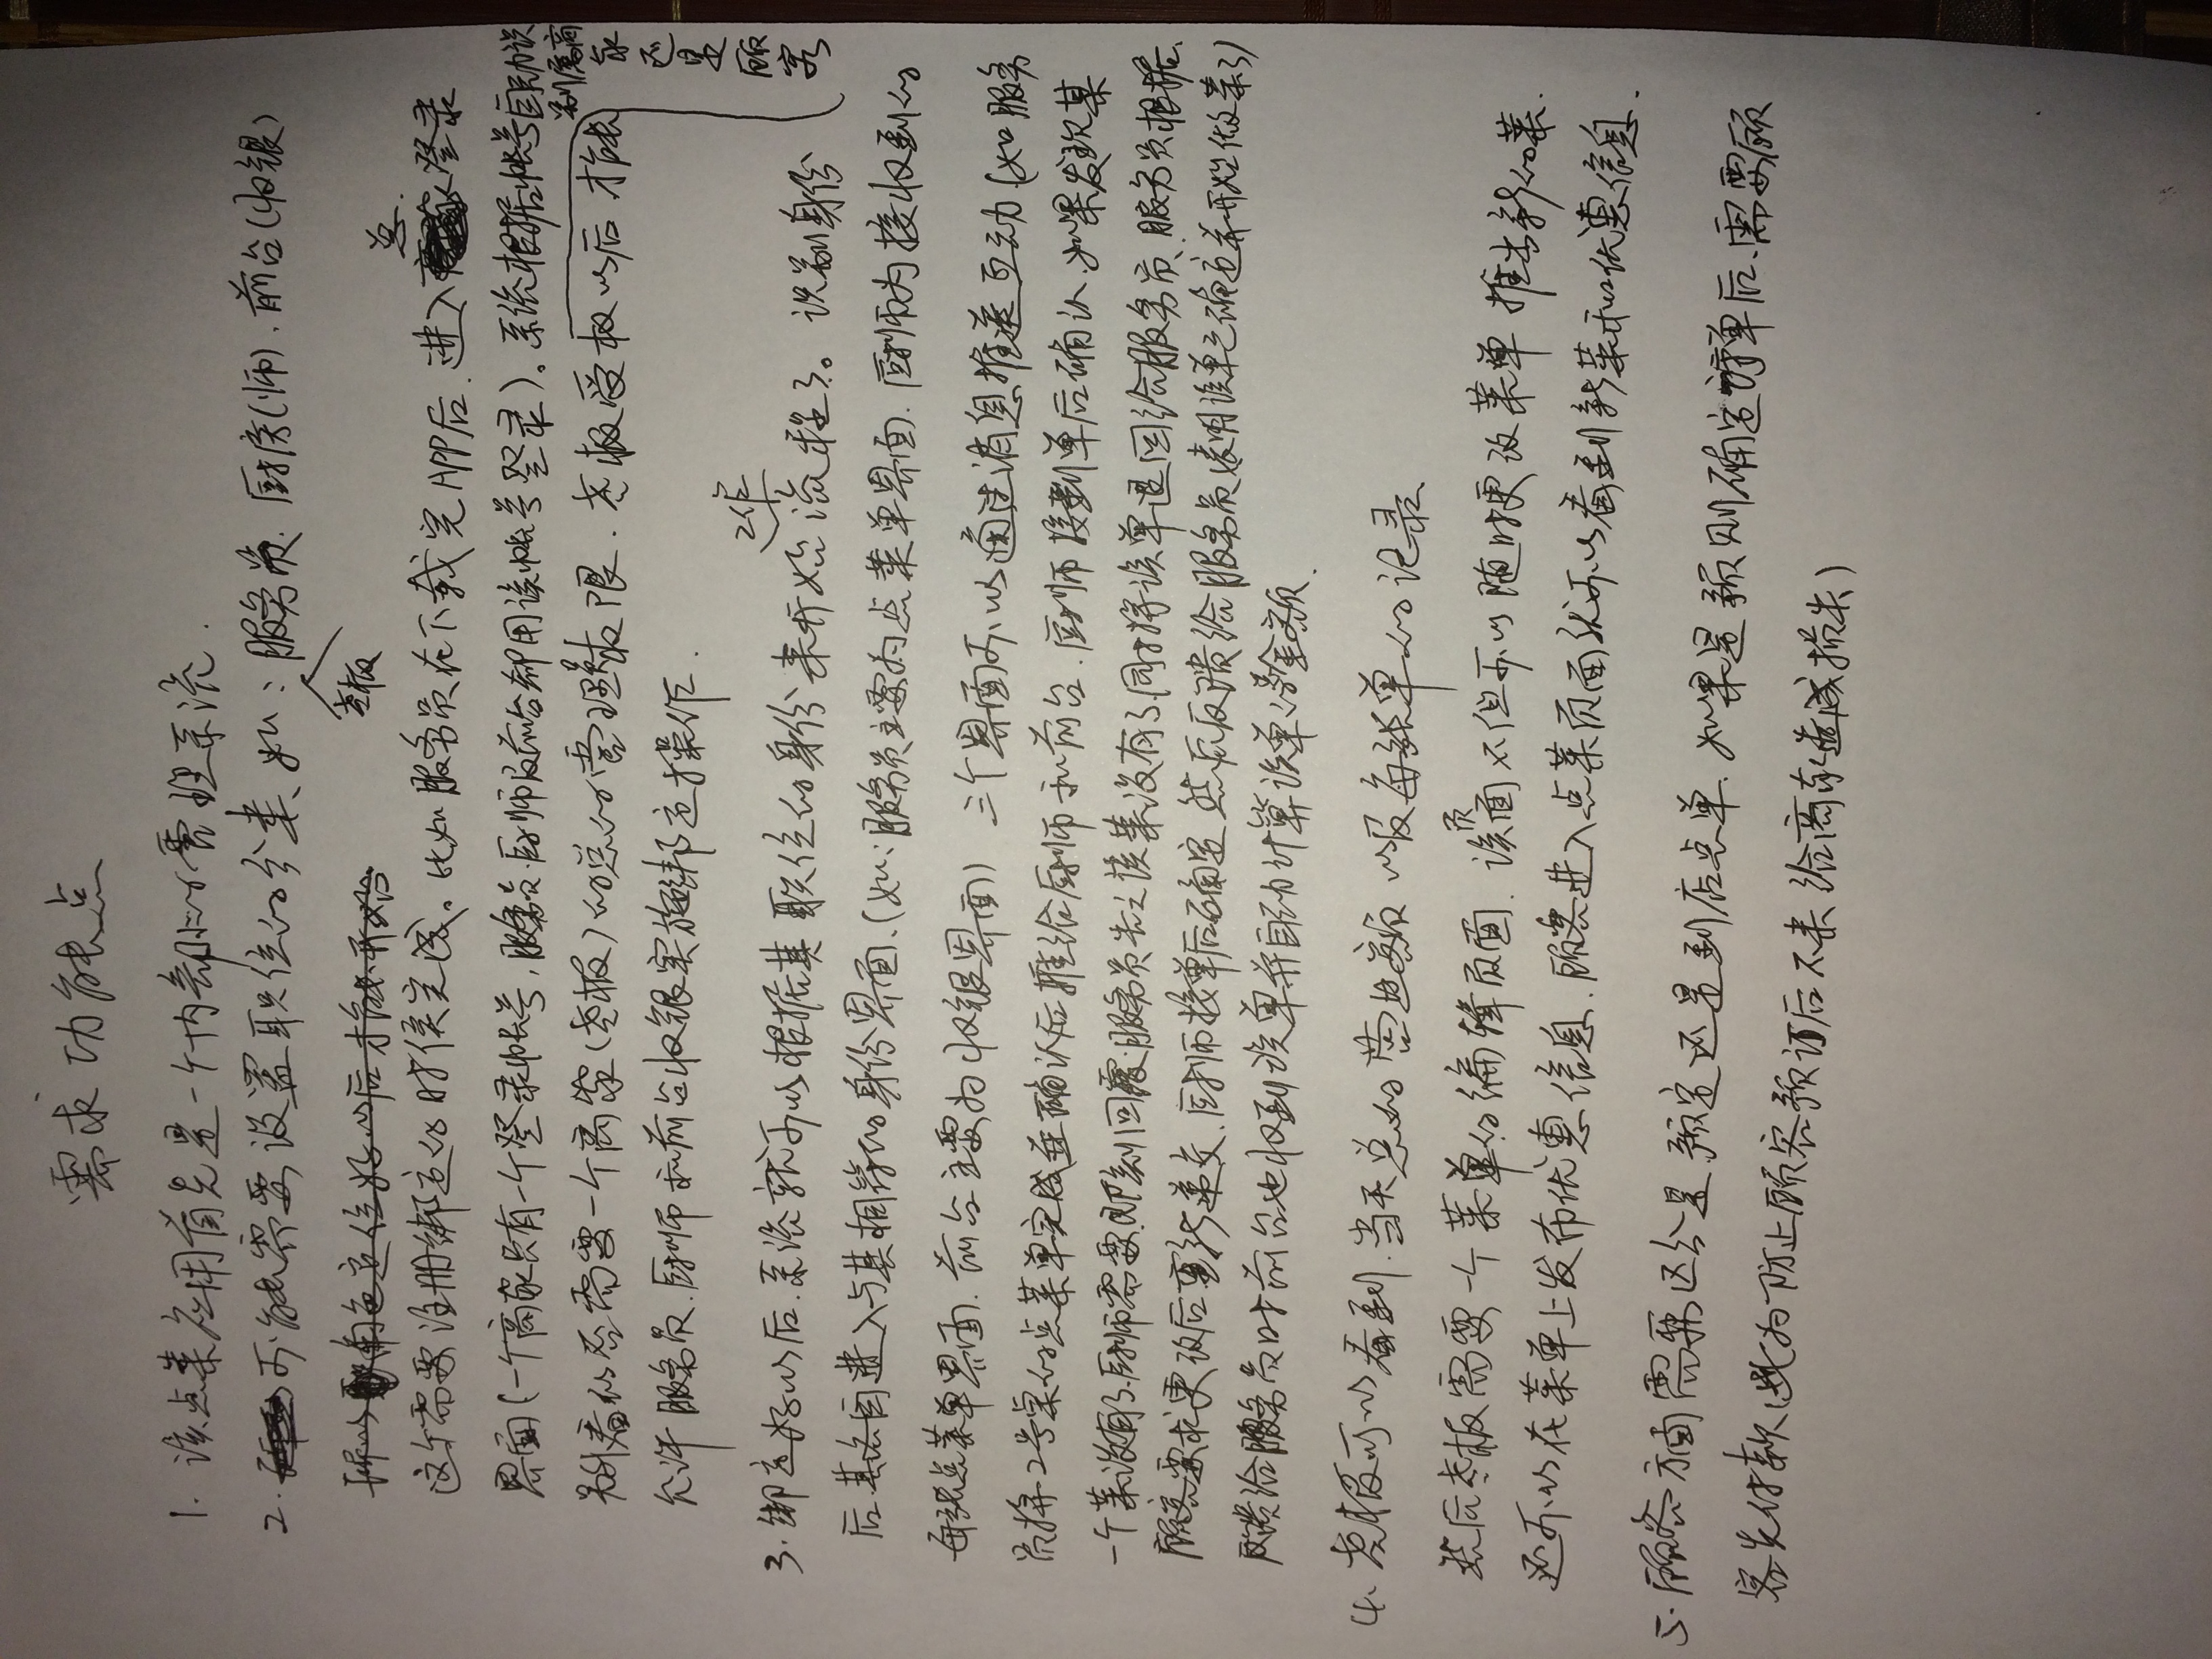 需求功能点
1. 该点菜应用首先是一个内部的管理系统.
2. 可能需要设置职位的分类、如：老板 服务员. 厨房(师). 前台(收银)
所以 角色定位好以后才能开始
这个需要注册绑定的时候完成。比如服务员在下载完APP后. 进入总登录
界面(一个商家只有一个登录帐号,服务员.厨师及前台都用该帐号登录)。系统根据帐号自动识
别属商家还是顾客
另外看的否需要一个商家(老板)的总的管理权限. 老板受权以后才能
允许服务员.厨师和前台收银实施绑定操作.
3. 绑定好以后.系统就可以根据其职位的身份来开始工作流程了。识别身份
后.其各自进入与其相符的身份界面.(如:服务员主要为点菜单界面. 厨师为接收到的
每张点菜单界面. 前台主要为收银界面) 三个界面可以通过消息推送互动.(如服务
员将2号桌的点菜单完成并确认后推给厨师和前台.厨师接到单后确认.如果发现某
一个菜没有了.厨师需要即刻回覆服务员告之该菜没有了.同时将该单退回给服务员.服务员根据
顾客要求更改后重新递交.厨师接单后确定 然后反馈给服务员表明该单已确定并开始做菜了)
反馈给服务员时前台也收到该单并自动计算该单的金额.
4. 老板可以看到.当天总的营业额 以及每张单的记录.
然后老板需要一个菜单的编辑页面. 该页面不但可以随时更改菜单 推出新的菜.
还可以在菜单上发布优惠信息.顾客进入点菜页面就可以看到新菜和优惠信息.
5. 顾客方面需要区分是预定还是到店点单. 如果是预则确定单后.需要顾
客先付款(此为防止顾客预订后不来 给商家造成损失)